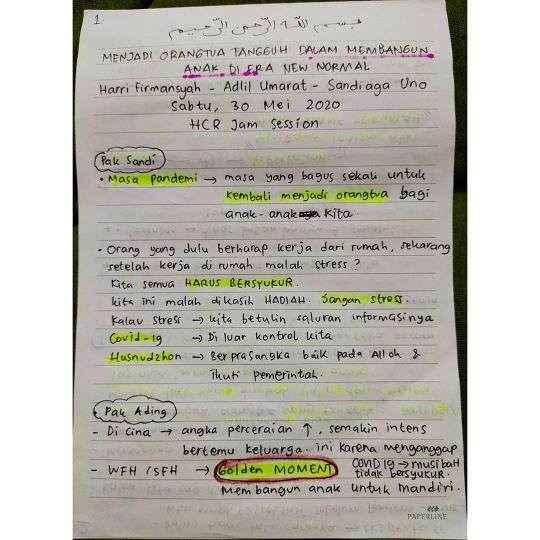 1.
بسم الله الرحمن الرحيم
MENJADI ORANGTUA TANGGUH DALAM MEMBANGUN
ANAK DI ERA NEW NORMAL
Harri Firmansyah - Adlil Umarat - Sandiaga Uno
Sabtu, 30 Mei 2020
HCR Jam Session
Pak Sandi
• Masa Pandemi → masa yang bagus sekali untuk
kembali menjadi orangtua bagi
anak-anak kita.
• Orang yang dulu berharap kerja dari rumah, sekarang
setelah kerja di rumah malah stress?
Kita semua HARUS BERSYUKUR.
kita ini malah dikasih HADIAH. Jangan stress.
Kalau stress → kita betulin saluran informasinya
Covid-19 → Di luar kontrol kita
Husnudzhon → Berprasangka baik pada Alloh &
Ikuti pemerintah.
• Pak Ading
- Di Cina → angka perceraian ↑, semakin intens
bertemu keluarga. ini karena menganggap
COVID 19 → musibah
tidak bersyukur.
- WFH / SFH → Golden MOMENT
Membangun anak untuk mandiri.
PAPERLINE